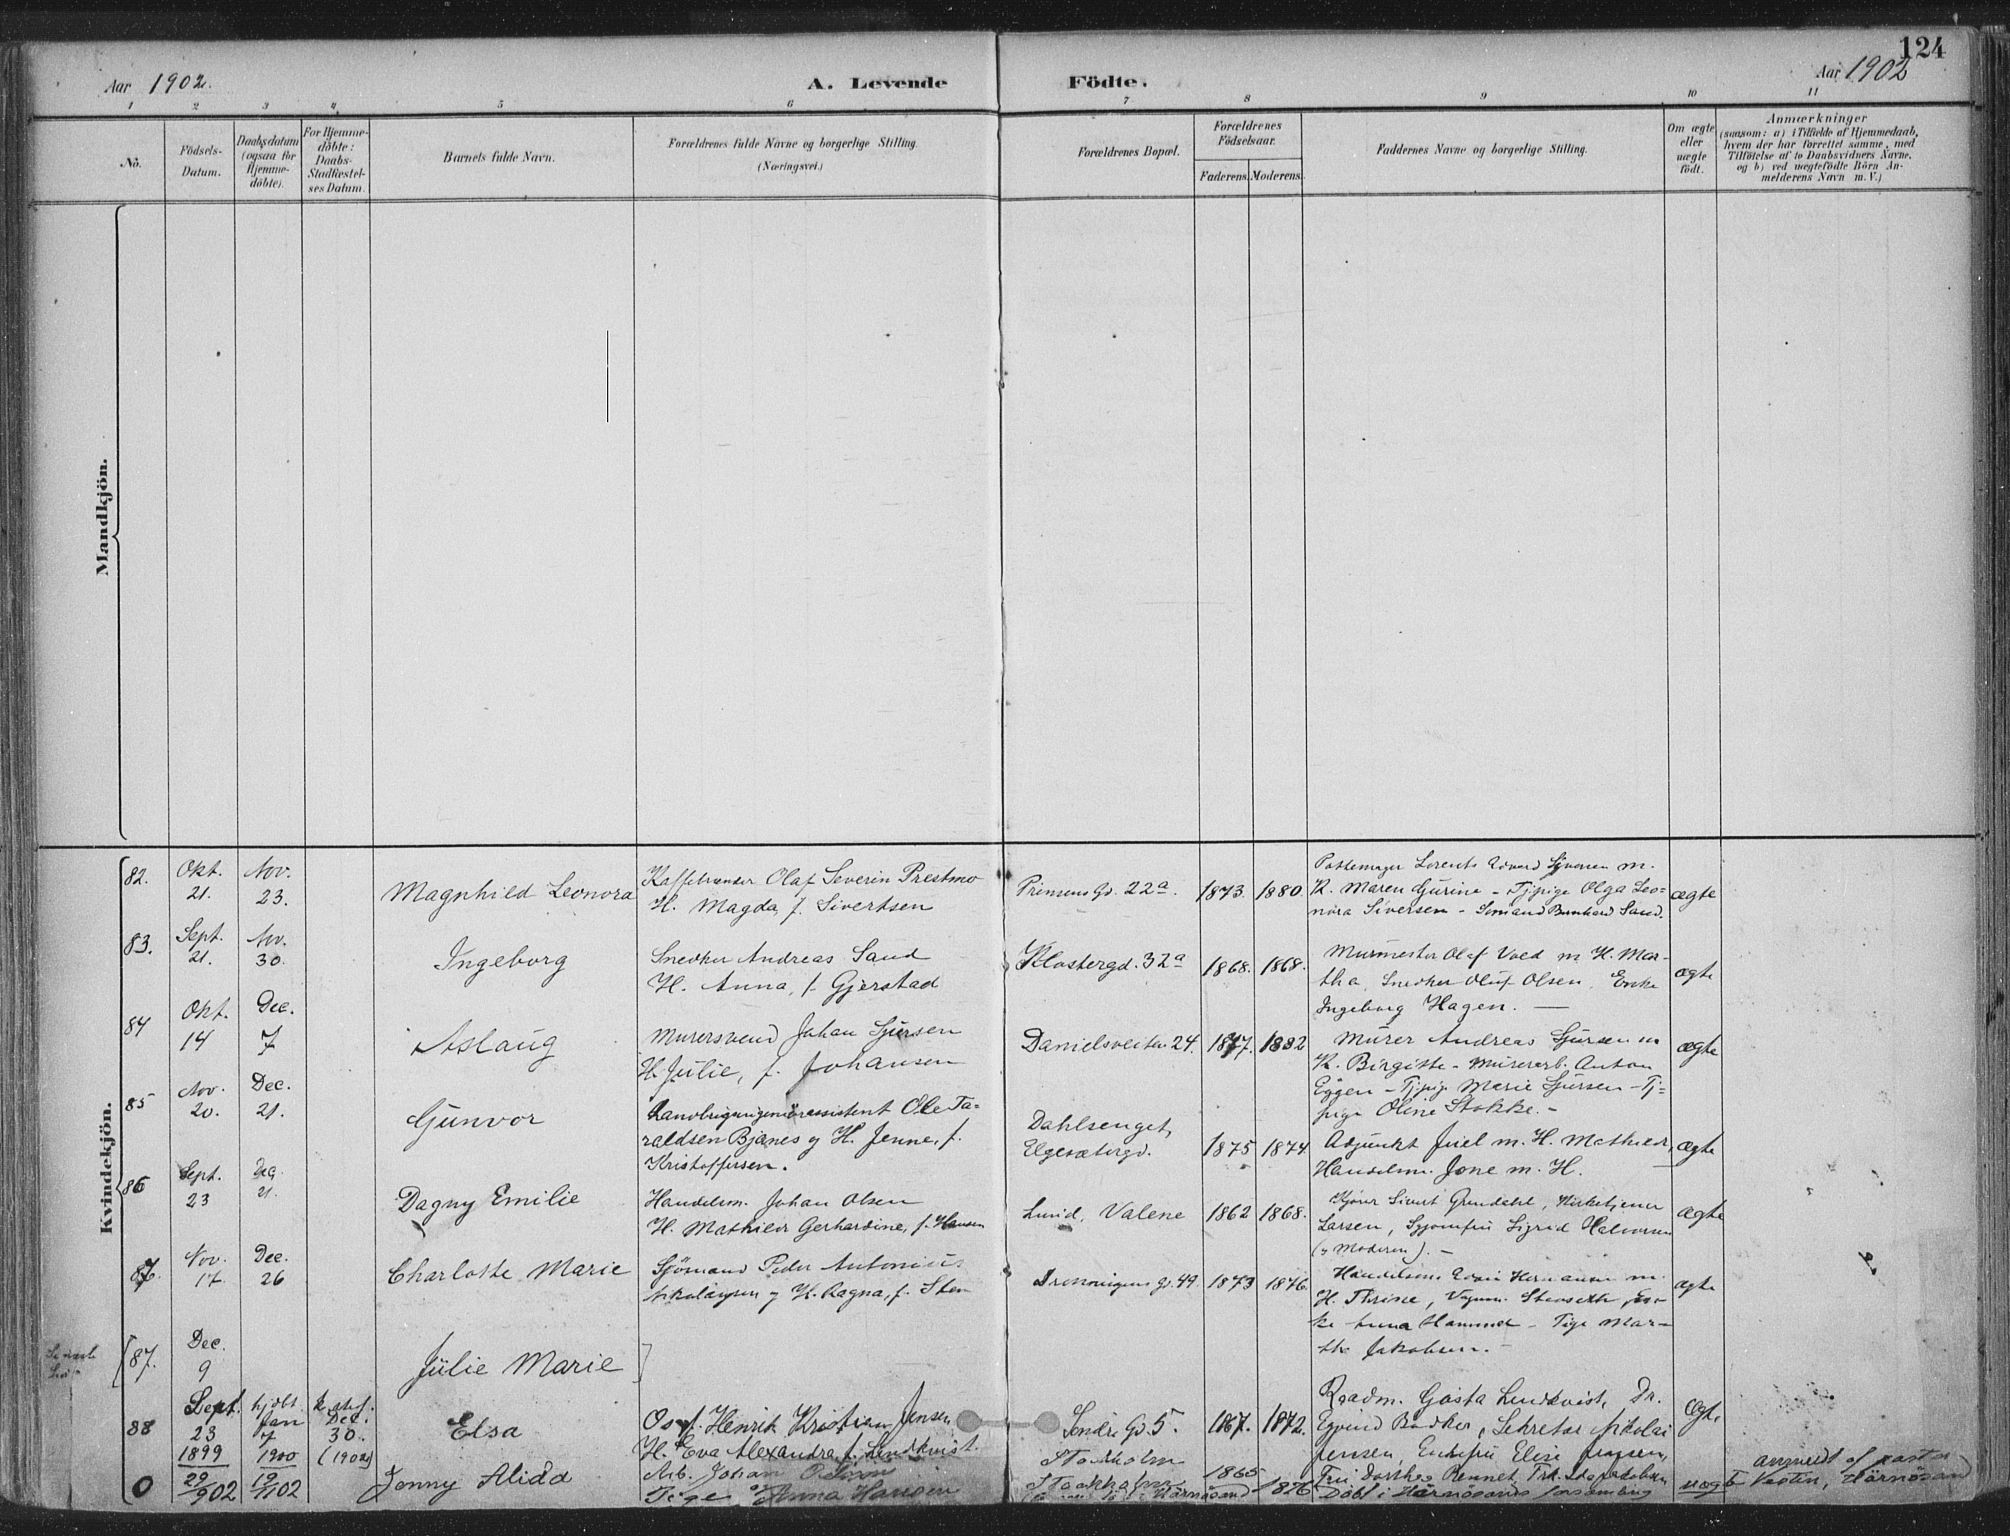 124
Aar 1902.
A. Levende
Födte.
Aar 1902
1 2 3 4 5 6 7 8 9 10 11
No.
Födsels-
Datum.
Daabsdatum
(ogsaa for
Hjemme-
döbte).
For Hjemme-
döbte:
Daabs-
Stadfæstel-
ses Datum.
Barnets fulde Navn.
Forældrenes fulde Navne og borgerlige Stilling.
(Næringsvei.)
Forældrenes Bopæl.
Forældrenes
Födselsaar.
Faderens. Moderens.
Faddernes Navne og borgerlige Stilling.
Om ægte
eller
uægte
födt.
Anmærkninger
(saasom: a) i Tilfælde af Hjemmedaab,
hvem der har forrettet samme, med
Tilföielse af to Daabsvidners Navne,
og b) ved uægtefödte Börn An-
melderens Navn m. V.)
Mandkjön.
Kvindekjön.
82.
Okt.
21.
Nov.
23.
Magnhild Leonora
Olaf Severin Prestmo
H. Magda, f. Sivertsen
Prinsens Gd. 22a.
1873. 1880.
Lorents Edvard m.
K. Maren Gurine - Tjpige Olga Leo-
nora Siversen - Sömand Bernhard Sand.
ægte
83.
Sept.
21.
Nov.
30.
Ingeborg
Snedker Andreas Sand
H. Anna, f. Gjerstad
Klostergd. 32a
1868. 1868.
Murmester Olaf Voll m. H. Mar-
tha, Snedker Oluf Olsen, Enke
Ingeborg Hagen. —
ægte
84
Okt.
14
Dec.
7
Aslaug
Murersvend Johan Sjursen
H. Julie, f. Johansen
Danielsveiten 24.
1877. 1882
Murer Andreas Sjursen m
K. Birgitte - Murerarb. Anton
Eggen - Tjpige Marie Sjursen - Tj-
pige Oline Stokke. -
ægte
85
Nov.
20.
Dec.
21.
Gunvor
Ole Ta-
raldsen Bjanes og H. Jenne, f.
Kristoffersen.
Dahlsenget,
Elgesætergd.
1875 1874
Adjunkt Juel m. H. Mathilde,
Handelsm. Jone m. H.
ægte
86
Sept.
23
Dec.
21.
Dagny Emilie
Handelsm. Johan Olsen
H. Mathilde Gerhardine, f. Hansen
Lund, Valene
1862 1868.
Sivert Grendahl, Kirketjener
Larsen, Sigrid Halvorsen
(og Moderen). -
ægte
87.
Nov.
17.
Dec.
26
Charlotte Marie
Sjömand Peder Antonius
Nikolaysen og H. Ragna, f. Sten
Dronningens gd. 49.
1873 1876.
Handelsm. Edvin Hermansen m.
H. Thrine, Stenseth, En-
ke Anna Hammer - Pige Mar-
the Jakobsen. -
ægte
87.
Dec.
9
Julie Marie
88
Sept.
23
1899
hjdbt.
Jan
7
1900
Dec.
30.
(1902)
Elsa
Henrik Kristian Jensen
H. Eva Alexandra, f. Lindkvist.
Söndre Gd. 5.
1867. 1872.
Gösta Lindkvist, Dr.
Sekretær Nikolai
Jensen, Enkefru Elise Jensen,
Ægte
0
29
9 02
19
11 02
Jenny Alida
Arb. Johan
Pige Anna Hansen
Stockholm
1865
1876
Döbt i Härnösands forsamling
uægte
anmeldt af pastor
Vestin, Härnösand